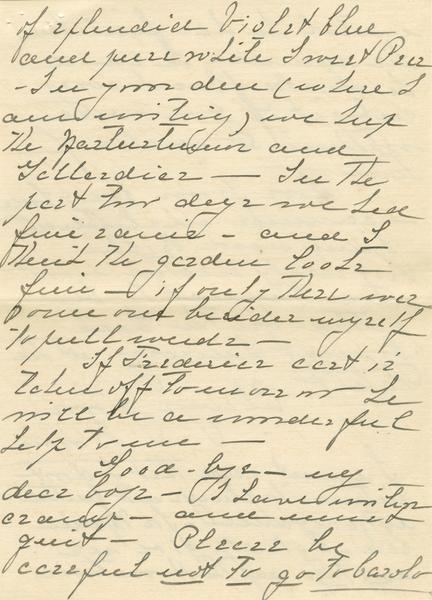 of splendid Violet blue
and pure white Sweet Peas
- In your den (where I
am writing) we keep
the Nasturtiums and
Gallardias — In the
past two days we had
fine rains - and I
think the garden looks
fine — if only there were
some one besides myself
to pull weeds —
If Frederics cast is
taken off tomorrow he
will be a wonderful
help to me —
Good-bye — my
dear boys — I have writers
cramp — and must
quit — Please be
careful not to go to